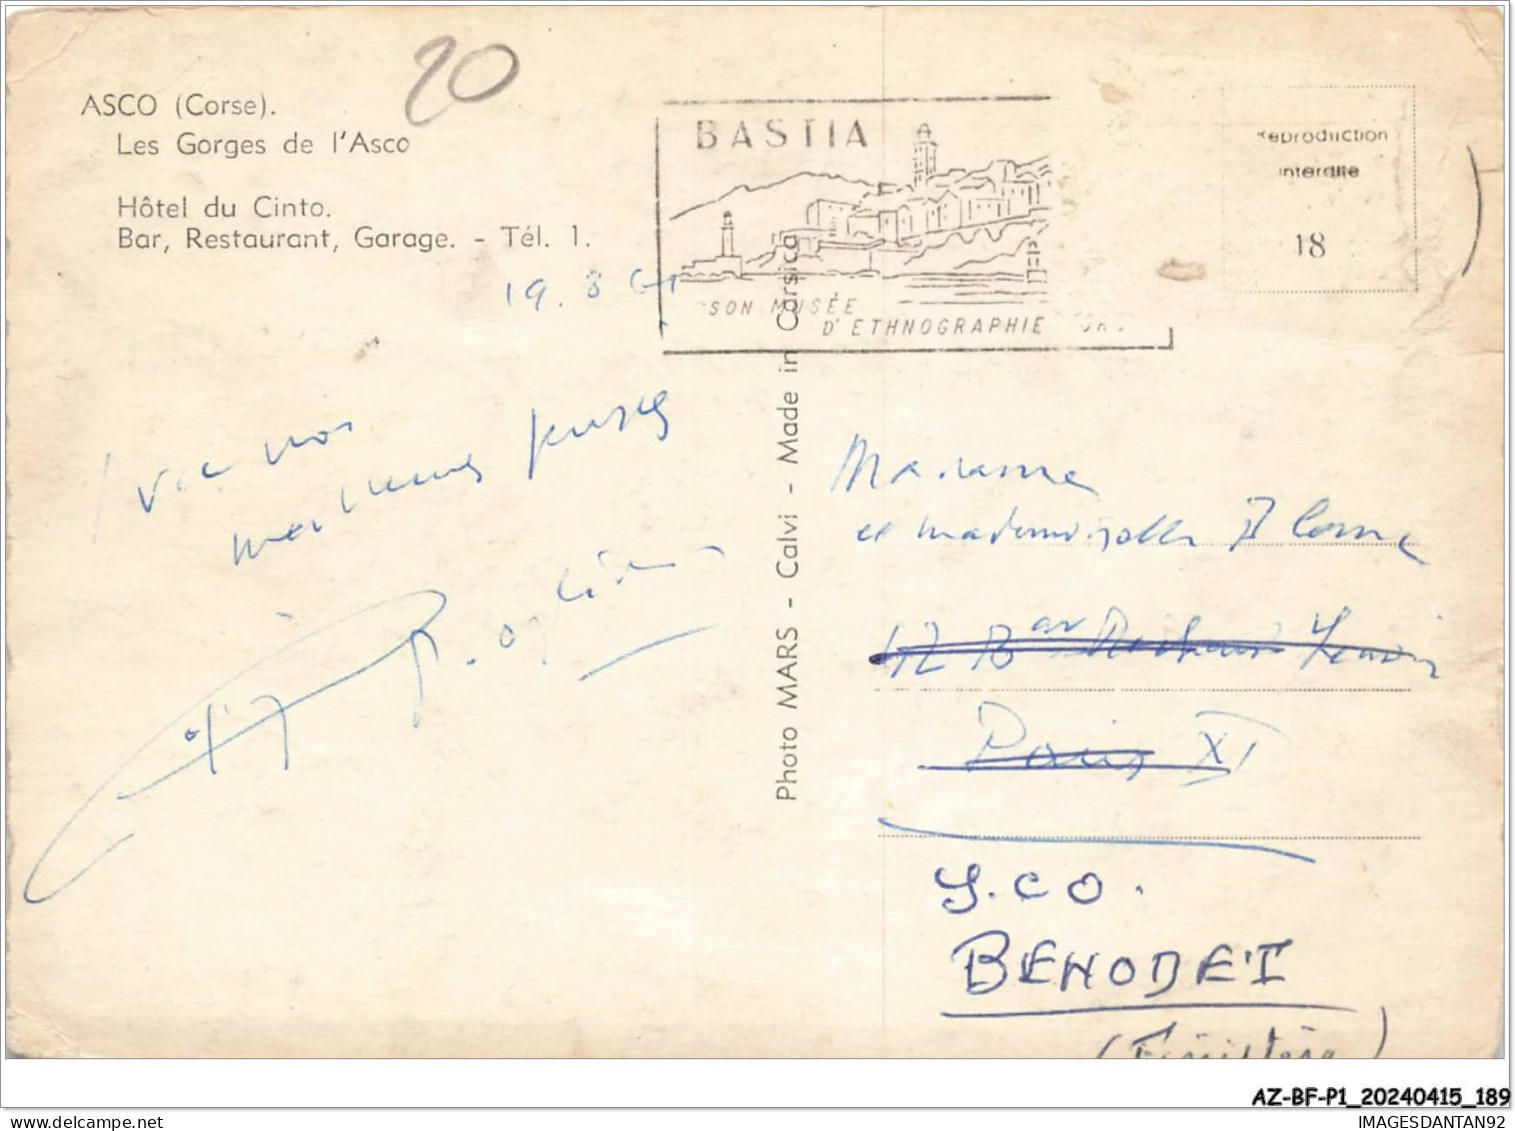 20
ASCO (Corse).
Les Gorges de l'Asco
Hôtel du Cinto.
Bar, Restaurant, Garage. - Tél. 1.
BASTIA
SON MUSÉE
D'ETHNOGRAPHIE
Reproduction
interdite
18
19.8
Photo MARS - Calvi - Made in Corsica
Avec nos
meilleures pensées
Madame
et mademoiselle
42 Bar Richard Lenoir
Paris XI
Y.CO.
BENODET
(Finistère)
AZ-BF-P1_20240415_189
IMAGESDANTAN92